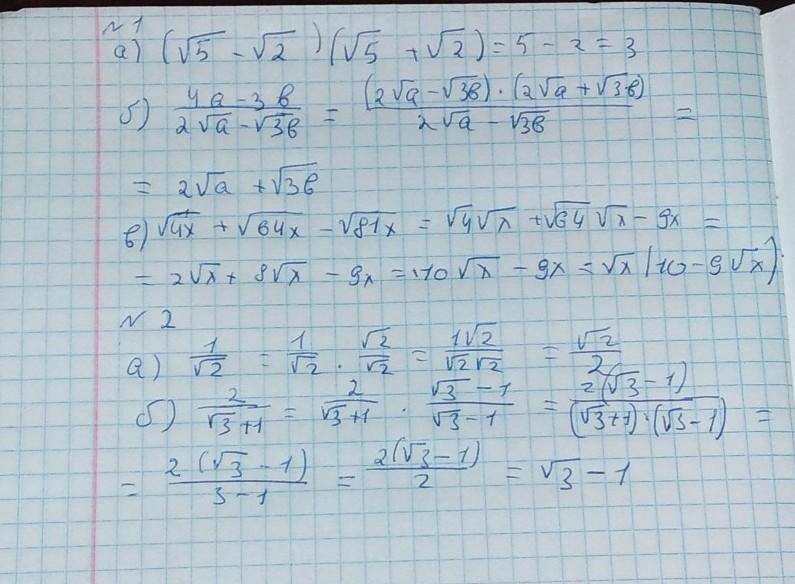 №1
а) (√5 - √2)(√5 + √2) = 5 - 2 = 3
б) (4a - 3b)/(2√a - √3b) = ((2√a - √3b) · (2√a + √3b))/(2√a - √3b) =
= 2√a + √3b
в) √4x + √64x - √81x = √4√x + √64√x - 9x =
= 2√x + 8√x - 9x = 10√x - 9x = √x(10 - 9√x)
№2
а) 1/√2 = 1/√2 · √2/√2 = 1√2/√2√2 = √2/2
б) 2/(√3+1) = 2/(√3+1) · (√3-1)/(√3-1) = 2(√3-1)/((√3+1)·(√3-1)) =
= 2(√3-1)/(3-1) = 2(√3-1)/2 = √3-1